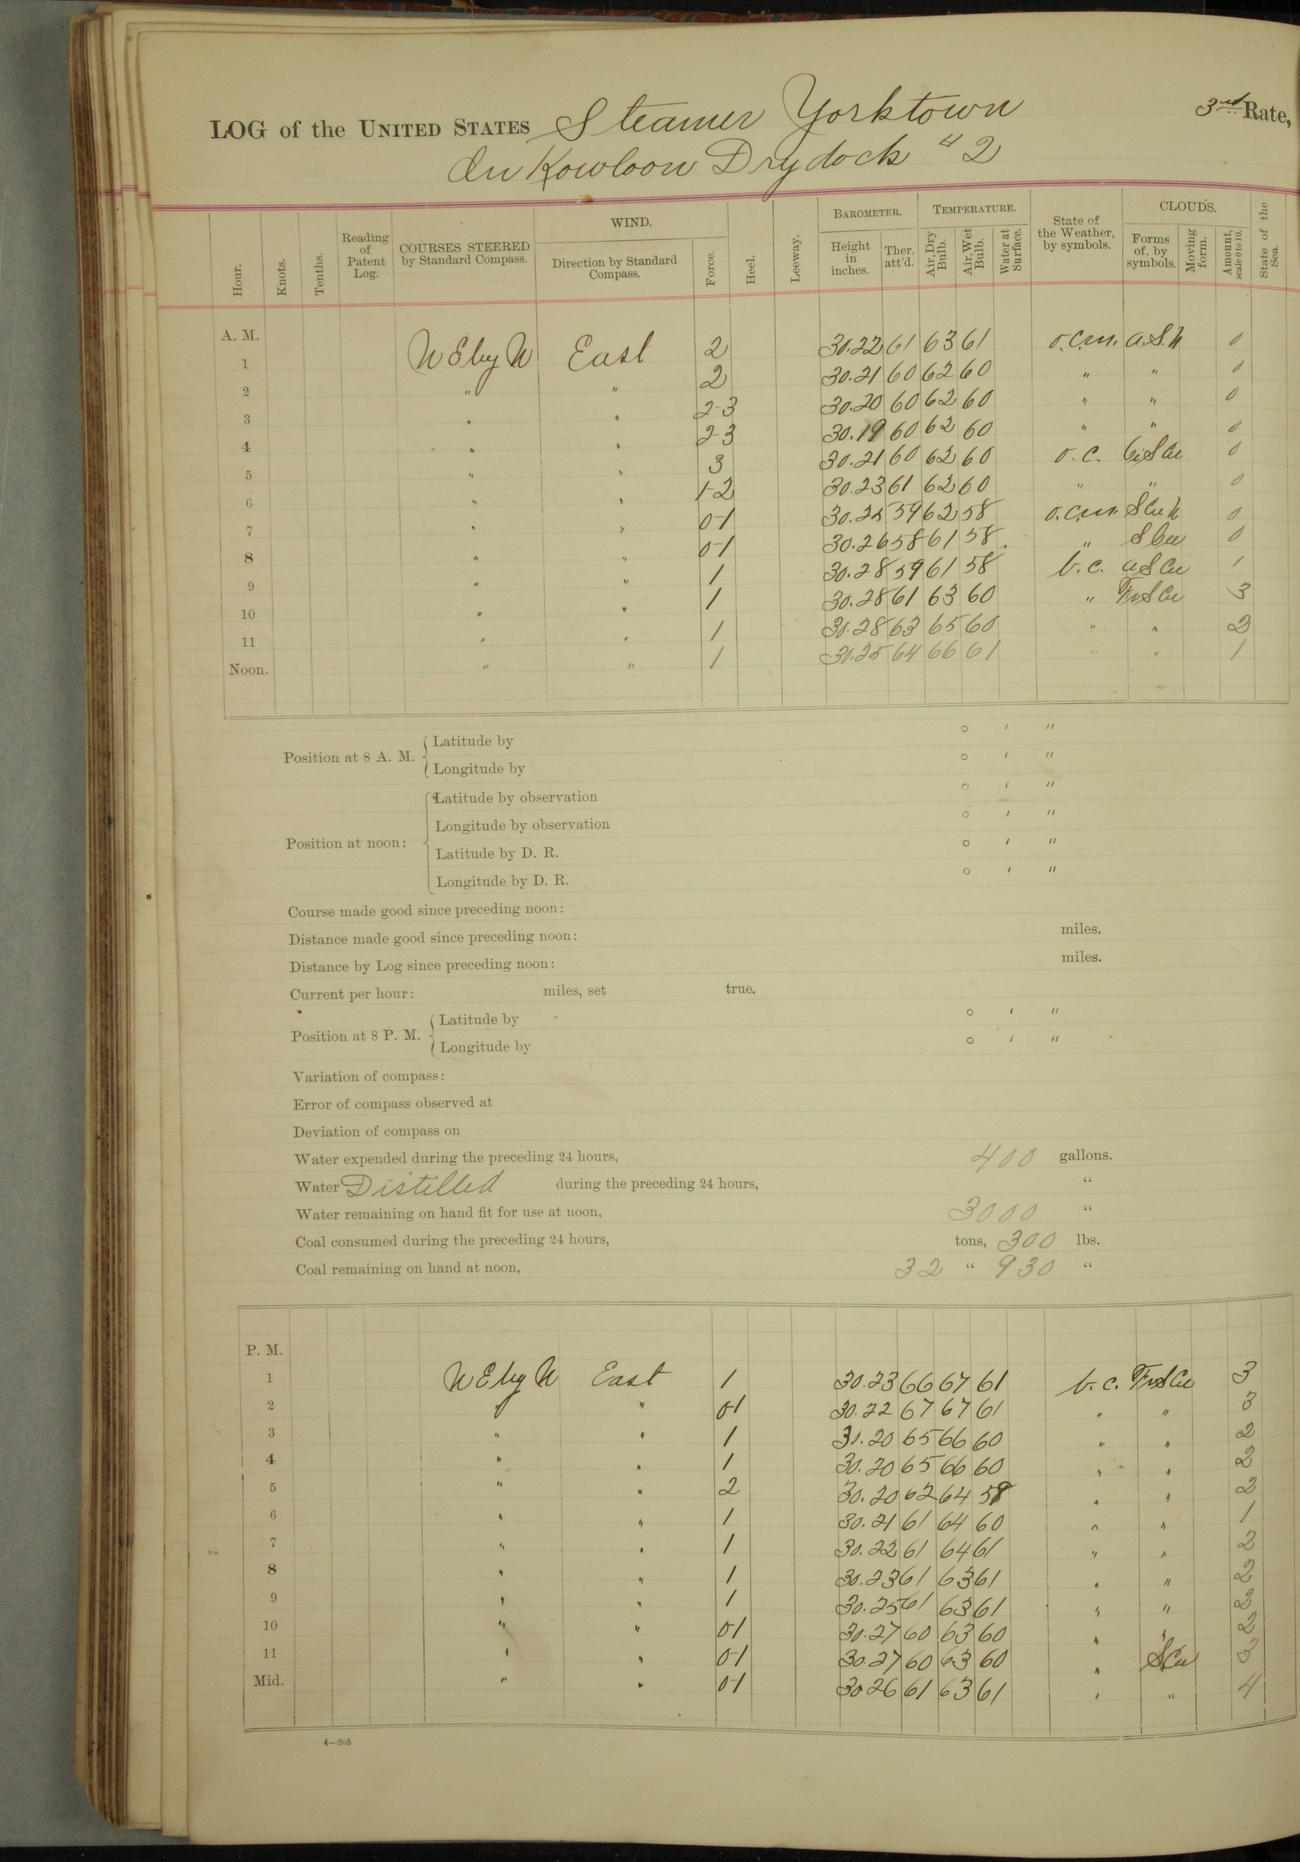 LOG of the UNITED STATES Steamer Yorktown 3rd Rate,
In Kowloon Drydock # 2
Hour. Knots. Tenths. Reading of Patent Log. COURSES STEERED by Standard Compass. WIND. Direction by Standard Compass. Force. Heel. Leeway. BAROMETER. Height in inches. Ther. att'd. TEMPERATURE. Air, Dry Bulb. Air, Wet Bulb. Water at Surface. State of the Weather, by symbols. CLOUDS. Forms of, by symbols. Moving form. Amount, scale 0 to 10. State of the Sea.
A. M.
1 NE by N East 2 30.22 61 63 61 o.c.m. 0
2 " " 2 30.21 60 62 60 " " 0
3 " " 2-3 30.20 60 62 60 " " 0
4 " " 2-3 30.19 60 62 60 " " 0
5 " " 3 30.21 60 62 60 o.c. Ci.S Cu 0
6 " " 1-2 30.23 61 62 60 " " 0
7 " " 0-1 30.25 59 62 58 o.c.m. 0
8 " " 0-1 30.26 58 61 58 " S Cu 0
9 " " 1 30.28 59 61 58 b.c. a S Cu 1
10 " " 1 30.28 61 63 60 " Fr S Cu 3
11 " " 1 30.28 63 65 60 " " 2
Noon. " " 1 30.25 64 66 61 " " 1
Position at 8 A. M. Latitude by ° ′ ″
Longitude by ° ′ ″
Position at noon: Latitude by observation ° ′ ″
Longitude by observation ° ′ ″
Latitude by D. R. ° ′ ″
Longitude by D. R. ° ′ ″
Course made good since preceding noon:
Distance made good since preceding noon: miles.
Distance by Log since preceding noon: miles.
Current per hour: miles, set true.
Position at 8 P. M. Latitude by ° ′ ″
Longitude by ° ′ ″
Variation of compass:
Error of compass observed at
Deviation of compass on
Water expended during the preceding 24 hours, 400 gallons.
Water Distilled during the preceding 24 hours, "
Water remaining on hand fit for use at noon, 3000 "
Coal consumed during the preceding 24 hours, tons, 300 lbs.
Coal remaining on hand at noon, 32 " 930 "
P. M.
1 NE by N East 1 30.23 66 67 61 b.c. Fr S Cu 3
2 " " 0-1 30.22 67 67 61 " " 3
3 " " 1 30.20 65 66 60 " " 2
4 " " 1 30.20 65 66 60 " " 2
5 " " 2 30.20 62 64 58 " " 2
6 " " 1 30.21 61 64 60 " " 1
7 " " 1 30.22 61 64 61 " " 2
8 " " 1 30.23 61 63 61 " " 2
9 " " 1 30.25 61 63 61 " " 2
10 " " 0-1 30.27 60 63 60 " " 2
11 " " 0-1 30.27 60 63 60 " S Cu 3
Mid. " " 0-1 30.26 61 63 61 " " 4
4—205